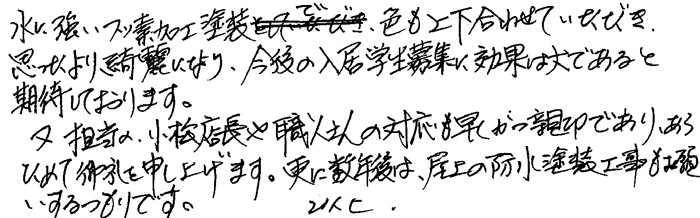 水に強いフッ素加工塗装で、色も上下合わせていただき、
思ったより綺麗になり、今後の入居学生募集に効果は大であると
期待しております。
又 担当の、小松店長や職人さんの対応も早くかつ親切であり、あら
ためて御礼を申し上げます。更に数年後は、屋上の防水塗装工事もお願
いするつもりです。 以上.